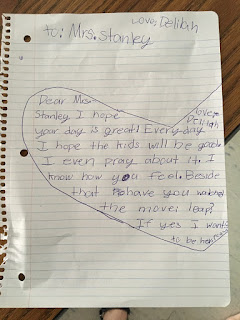 Love: Delilah
to: Mrs. Stanley
Dear Mrs.
Stanley I hope
love: Delilah
your day is great! Every day
I hope the kids will be good.
I even pray about it. I
know how you feel. Beside
that have you watched
the movei leap?
If yes I want
to be her